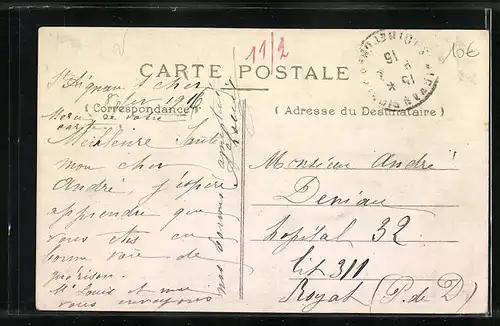 11/2
10€
CARTE POSTALE
( Correspondance )
( Adresse du Destinataire )
St Aignan s/ Cher
8 1916
Merci de votre
carte
Meilleure Santé
mon cher
André, j'espère
apprendre que
vous êtes en
bonne voie de
guérison.
St Louis et moi
vous envoyons
nos bonnes amitiés
Monsieur André
Deniau
hopital 32
lit 311
Royat (P. de D.)